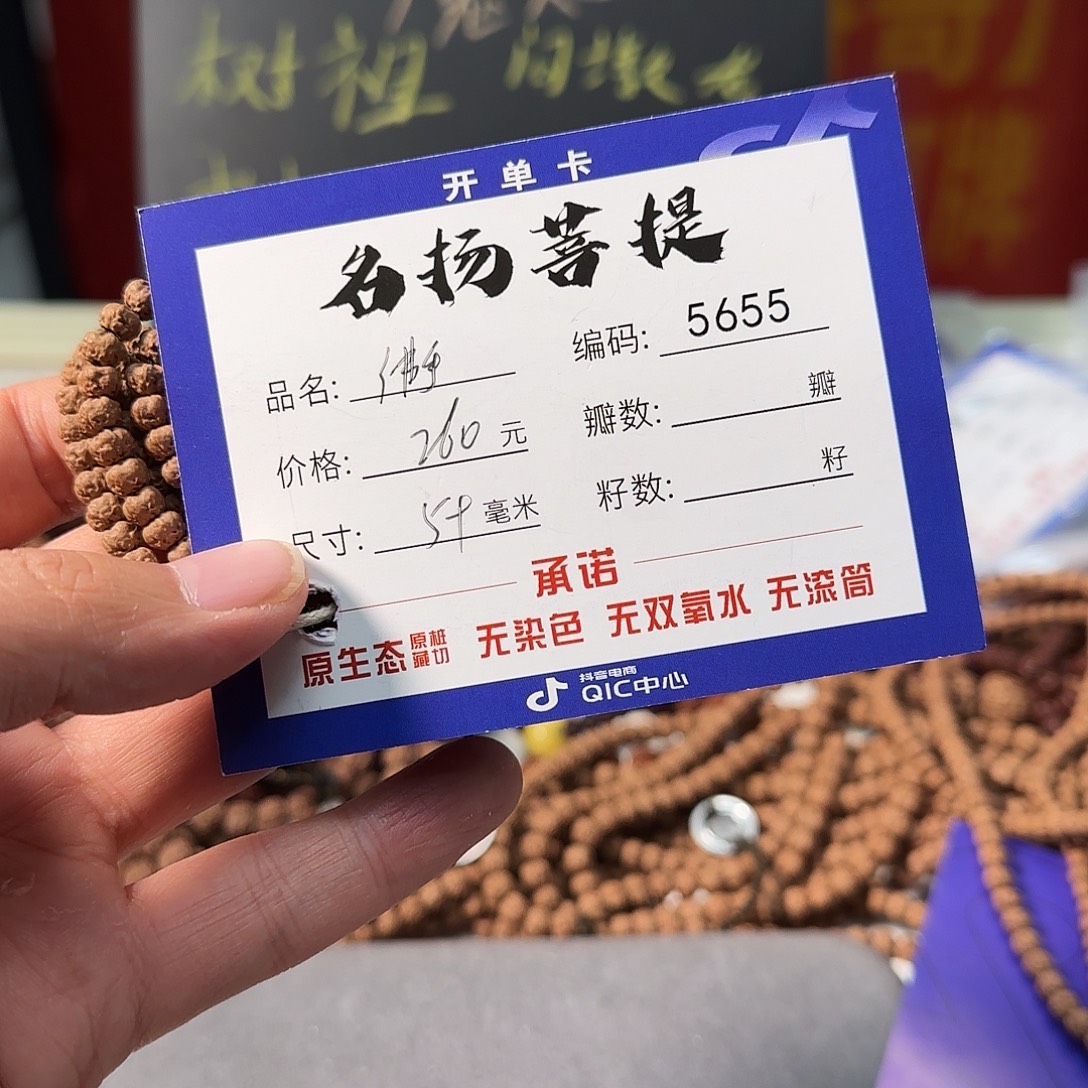 树祖
开单卡
名扬菩提
品名: 佛手
编码: 5655
价格: 260 元
瓣数: 瓣
尺寸: 54 毫米
籽数: 籽
承诺
原生态 原桩藏切 无染色 无双氧水 无滚筒
抖音电商
QIC中心